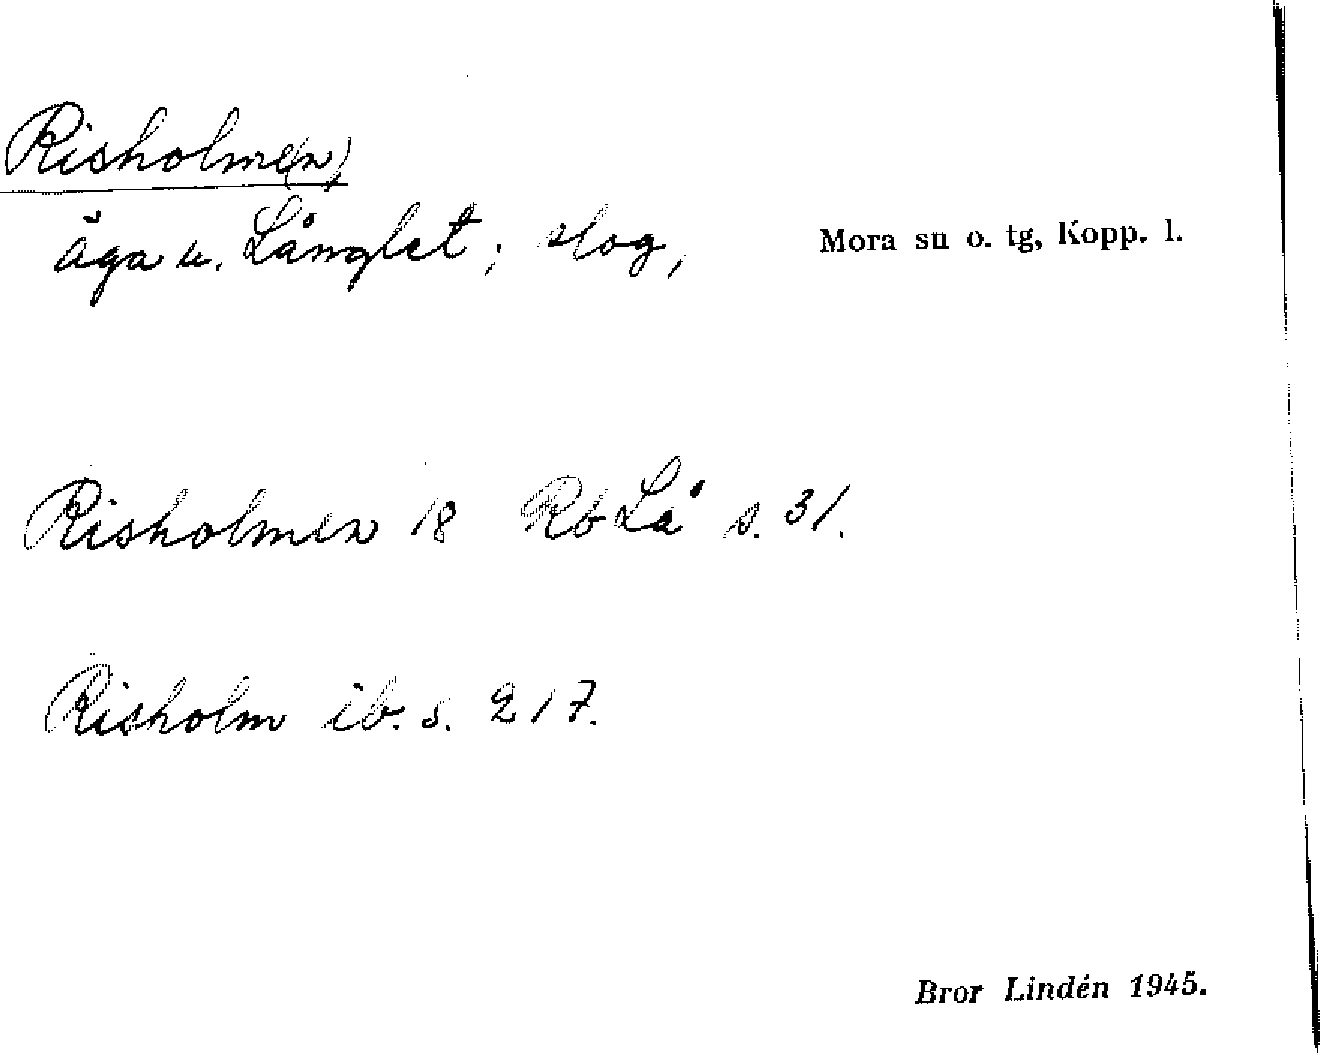 Risholme(n)
äga u. Långlet; slog, Mora sn o. tg, Kopp. l.
Risholmen 18 RbLå s. 31.
Risholm ib. s. 217.
Bror Lindén 1945.